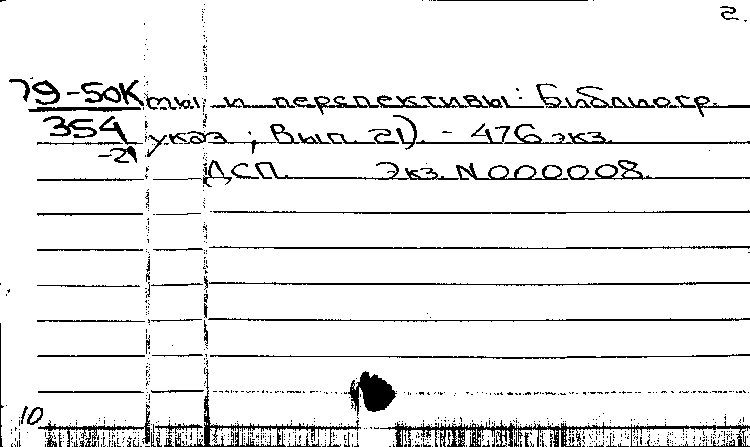 2.
79-50К ты и перспективы: Библиогр.
354 указ; Вып. 21). - 476 экз.
-21
ДСП. Экз. N000008.
10